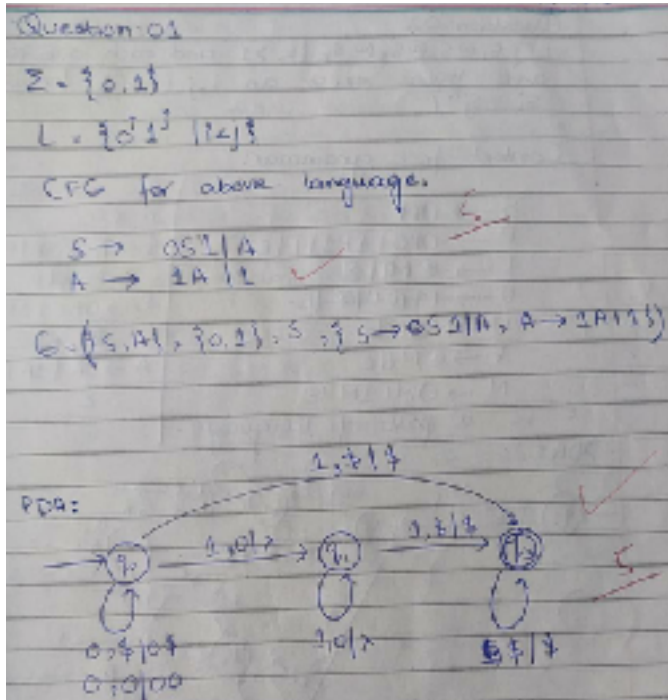 Question: 01
Σ = {0,1}
L = {0^i 1^j | i<j}
CFG for above language.
5
S → 0S1|A
A → 1A|1
G = ({S,A}, {0,1}, S, {S→0S1|A, A→1A|1})
1,$|$
PDA:
q₀ 1,0|λ q₁ 1,$|$ q₂
5
0,$|0$ 1,0|λ $|$
0,0|00